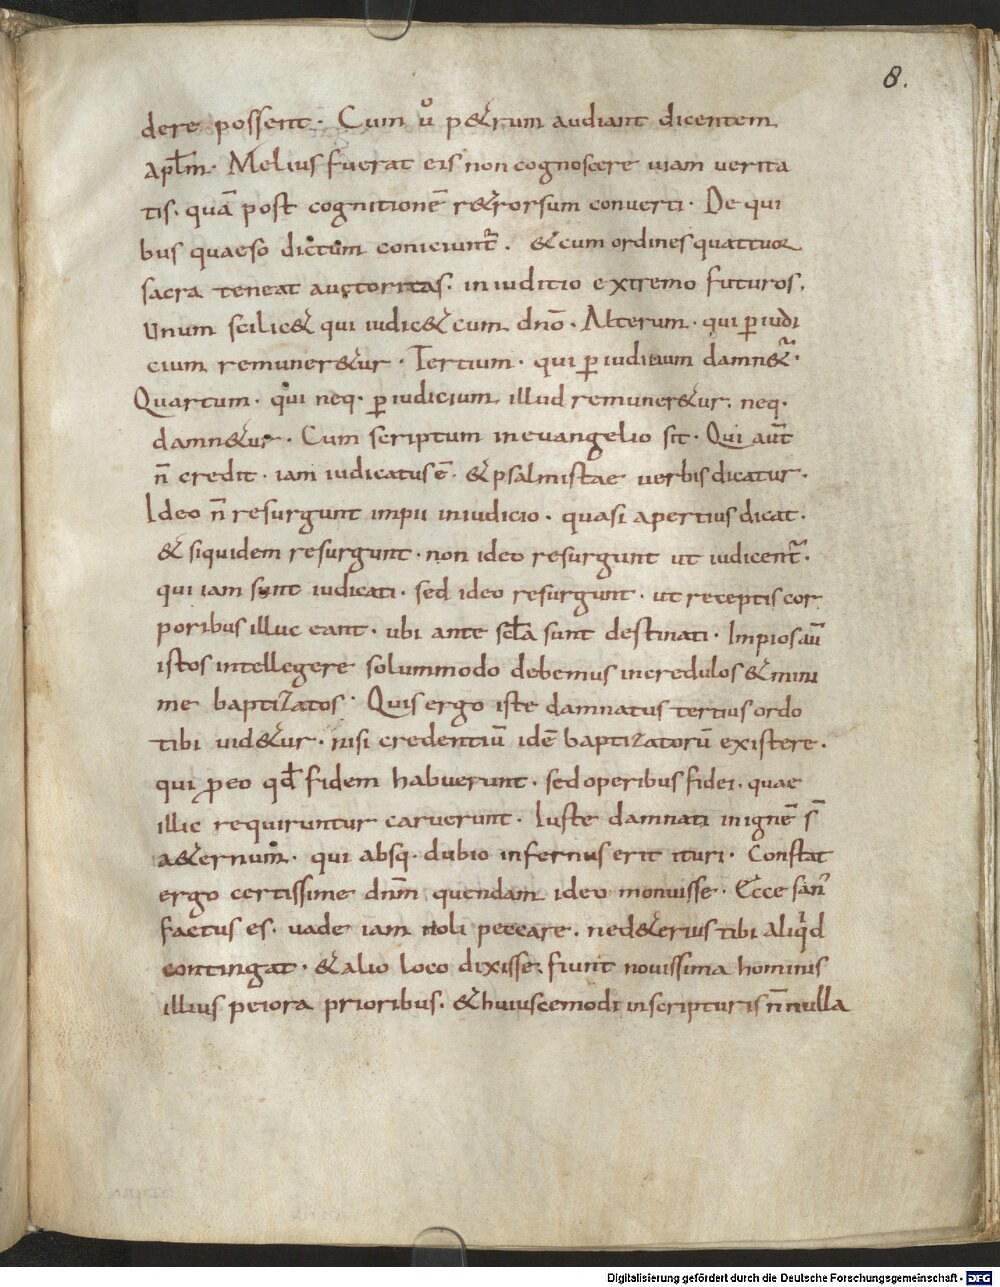 8.
dere possent · Cum ů p&rum audiant dicentem
apłm · Melius fuerat eis non cognoscere uiam uerita
tis · quā post cognitionē r&rorsum converti · De qui
bus quaeso dictum coniciunt᷑ · & cum ordines quattuor
sacra teneat auctoritas · in iuditio extremo futuros,
Unum scilic& qui iudic& cum dnō · Alterum · qui ꝑ iudi
cium remuner&ur · Tertium · qui ꝑ iudicium damn&᷑ ·
Quartum · qui neq · ꝑ iudicium illud remuner&ur, neq ·
damn&ur · Cum scriptum in evangelio sit · Qui aut̄
n̄ credit · iam iudicatus ē · & psalmistae uerbis dicatur ·
Ideo n̄ resurgunt impii in iudicio · quasi apertius dicat ·
& siquidem resurgunt · non ideo resurgunt ut iudicent᷑ ·
qui iam sunt iudicati · sed ideo resurgunt · ut receptis cor
poribus illuc eant · ubi ante scła sunt destinati · Impios aū
istos intellegere solummodo debemus incredulos & mini
me baptizatos · Quis ergo iste damnatus tertius ordo
tibi uid&ur · nisi credentiū idē baptizatorū existere ·
qui ꝓ eo qđ fidem habuerunt · sed operibus fidei · quae
illic requiruntur caruerunt · Iuste damnati in ignē s̄
a&ernum · qui absq · dubio infernus erit ituri · Constat
ergo certissime dnm̄ quendam ideo monuisse · Ecce san᷑
factus es · uade iam noli peccare · ne d&erius tibi aliqͥd
contingat · & alio loco dixisse, fiunt nouissima hominis
illius peiora prioribus · & huiuscemodi in scripturis n̄ nulla
Digitalisierung gefördert durch die Deutsche Forschungsgemeinschaft - DFG